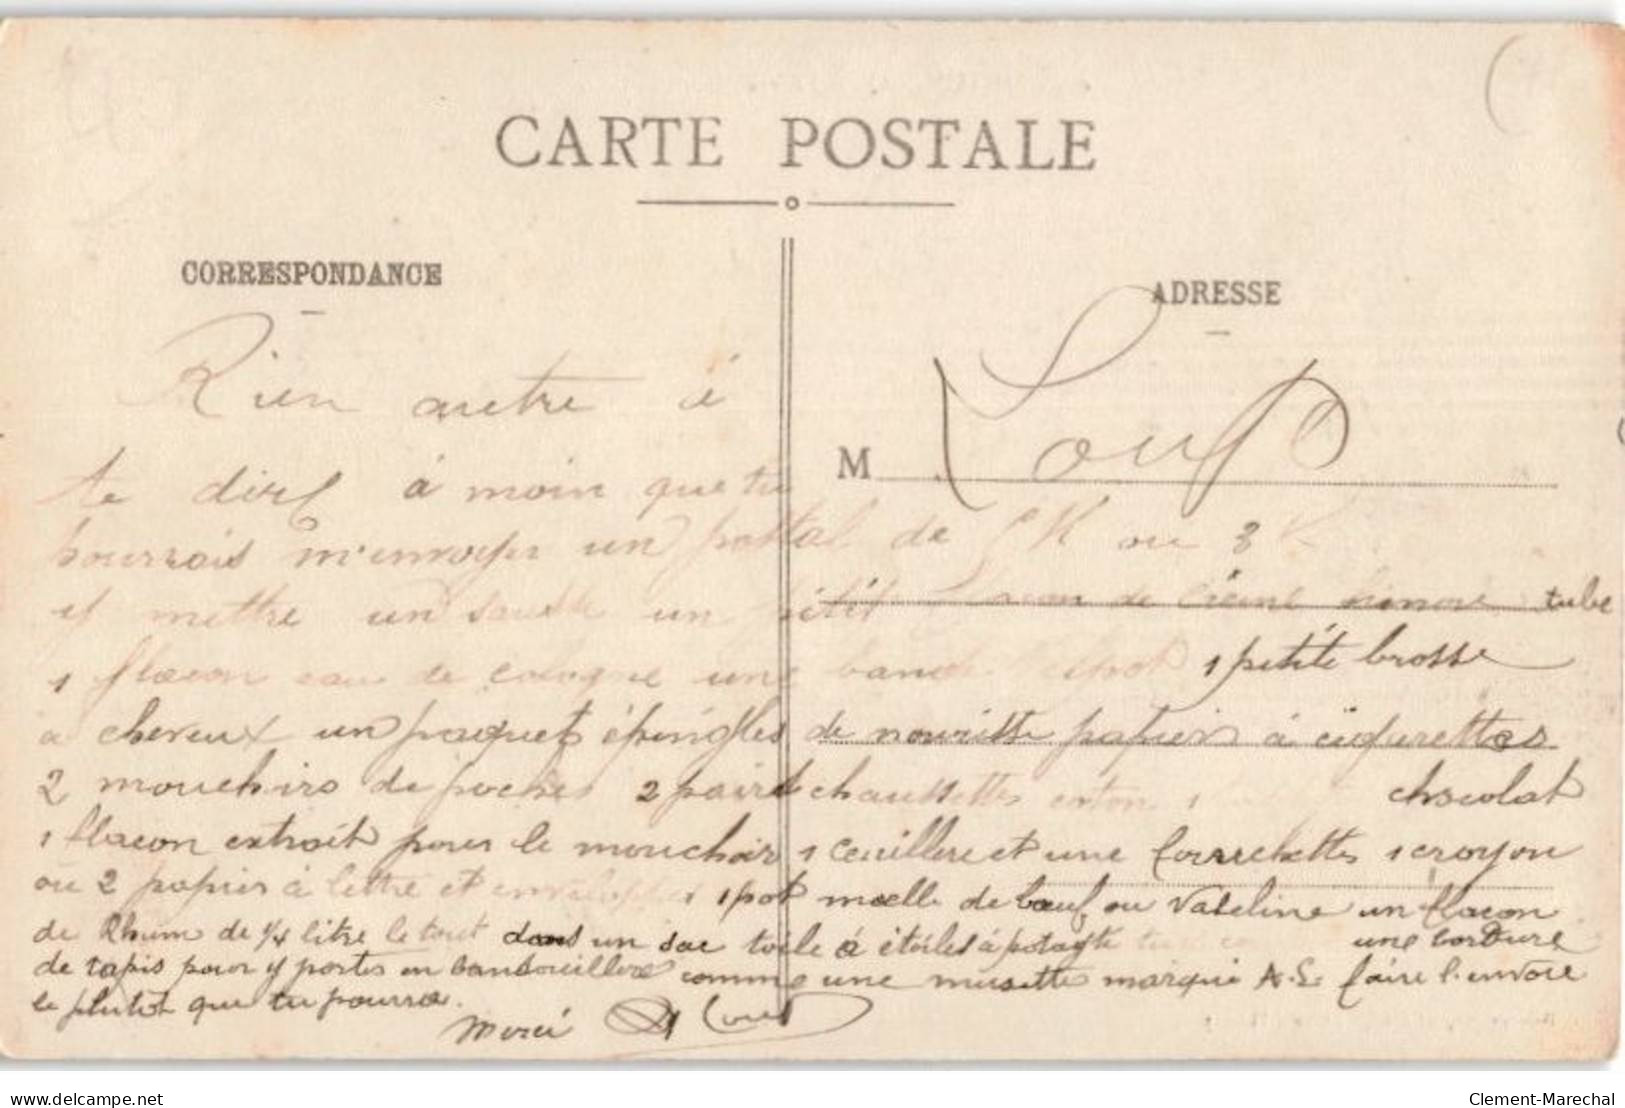 CARTE POSTALE
CORRESPONDANCE
ADRESSE
M Loup
Rien autre à
te dire à moin que tu
pourrais m'envoyer un postal de K ou 3 K
y mettre un un petit flacon de Creme Simon tube
1 flacon eau de cologne une 1 petite brosse
a cheveux un paquet épingles de nourisse papier à cigarettes
2 mouchoirs de poches 2 paire chaussettes coton 1 chocolat
1 flacon extrait pour le mouchoir 1 ceuillere et une fourchette 1 crayon
ou 2 papier à lettre et enveloppes 1 pot moelle de bœuf ou Vaseline un flacon
de Rhum de 1/4 litre le tout dans un sac toile à étoiles une bordure
de tapis pour y porter en bandouillere comme une musette marque A.L. faire l'envoie
le plutot que tu pourra.
Merci Loup
delcampe.net
Clement-Marechal